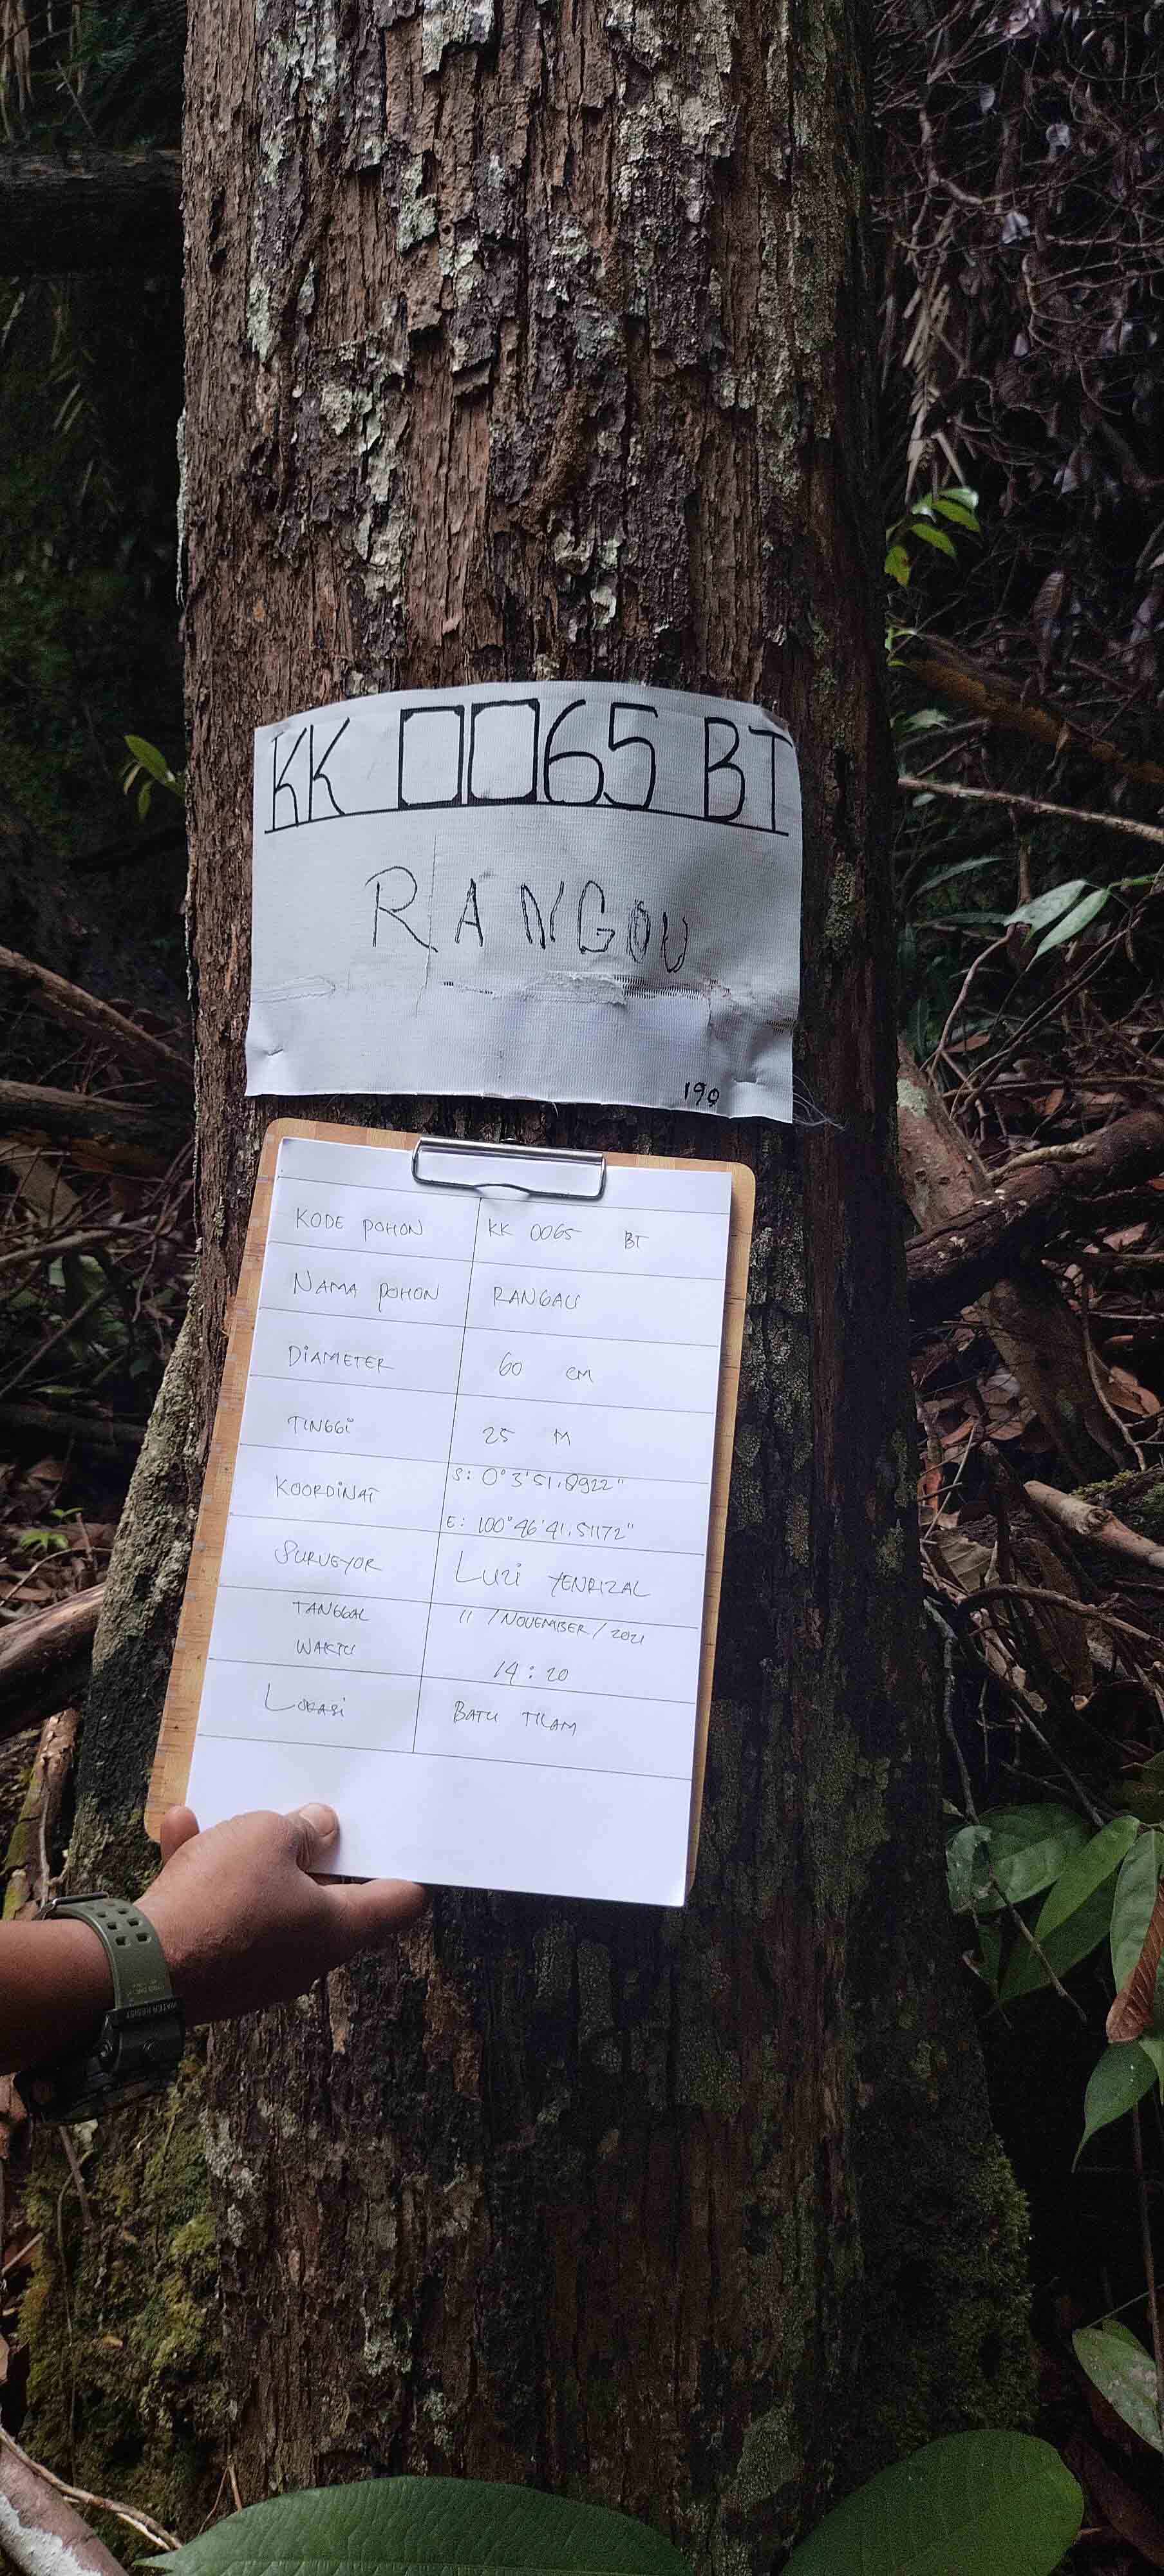 KK 0065 BT
RANGOU
190
KODE POHON KK 0065 BT
NAMA POHON RANGAU
DIAMETER 60 CM
TINGGI 25 M
KOORDINAT S: 0°3'51,8922"
E: 100°46'41,51172"
SURVEYOR LUZI YENRIZAL
TANGGAL 11 / NOVEMBER / 2021
WAKTU 14:20
LOKASI BATU TILAM
WATER RESIST